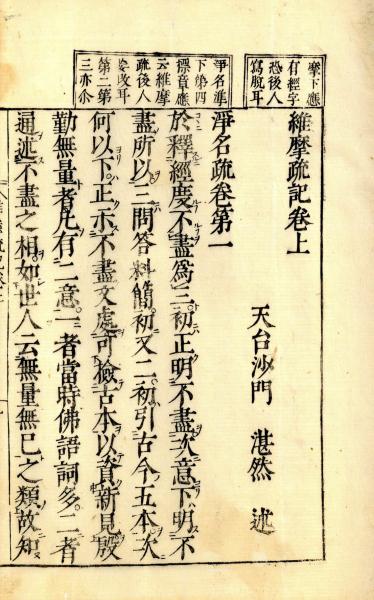 摩下應
有經字
恐後人
寫脫耳
維摩疏記卷上
天台沙門 湛然 述
淨名準
下第四
標章應
云維摩
疏後人
妄改耳
第二第
三亦尒
淨名疏卷第一
於釋經度不盡爲三初正明不盡次意下明不
盡所以三問答料簡初又二初引古今五本次
何以下正示不盡文處可撿古本以資新見殷
勤無量者凡有二意一者當時佛語詞多二者
通述不盡之相如世人云無量無已之類故知